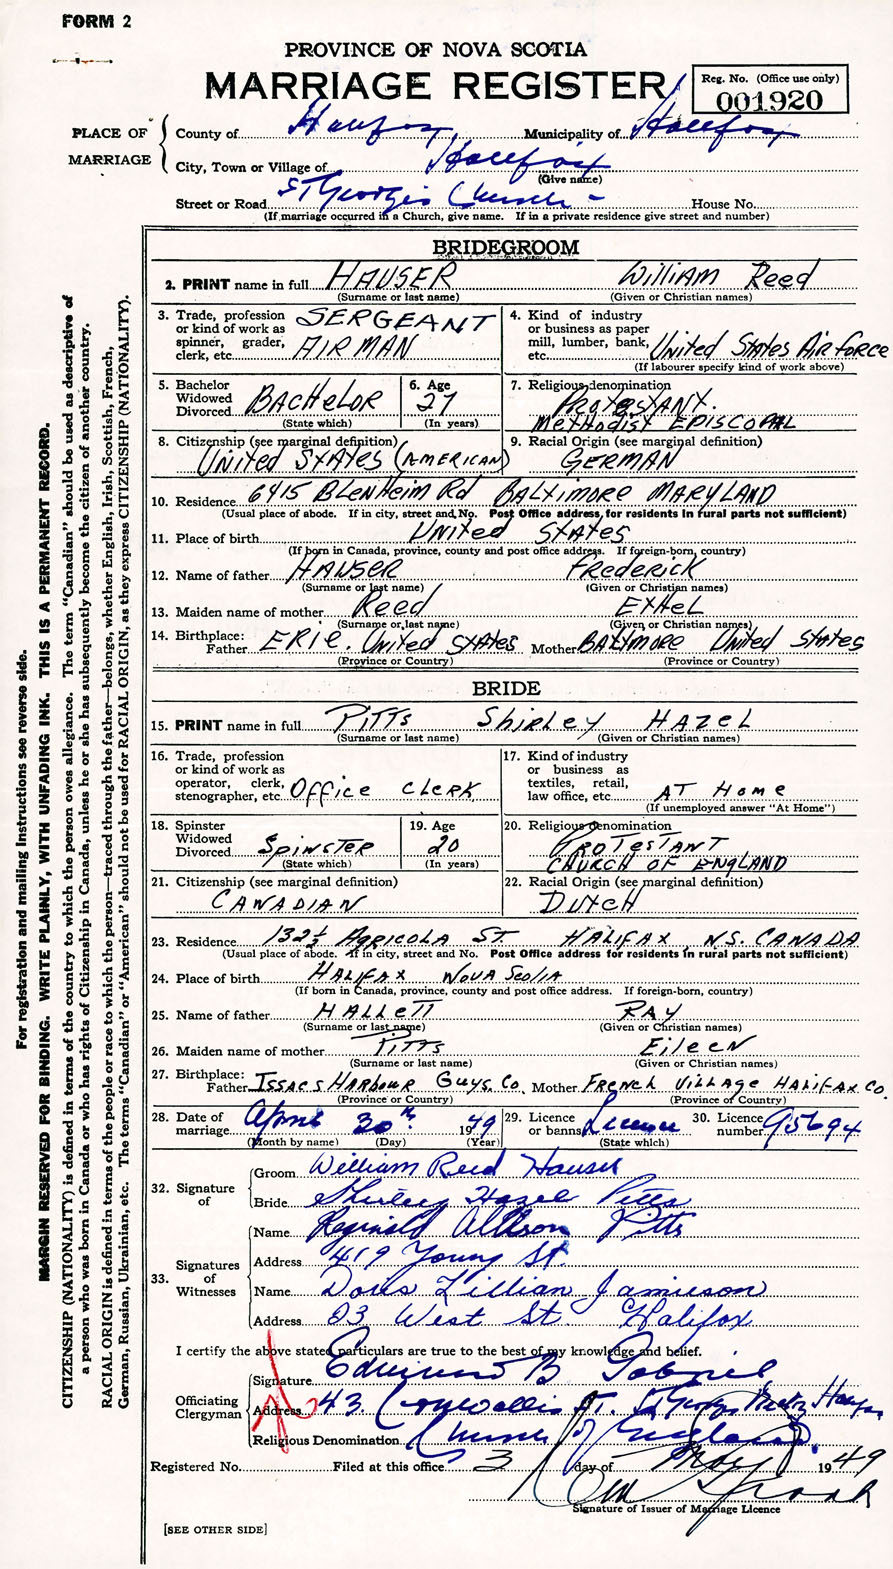 FORM 2
PROVINCE OF NOVA SCOTIA
MARRIAGE REGISTER
Reg. No. (Office use only)
001920
PLACE OF MARRIAGE
County of Halifax Municipality of Halifax
City, Town or Village of Halifax
(Give name)
Street or Road St Georges Church - House No.
(If marriage occurred in a Church, give name. If in a private residence give street and number)
BRIDEGROOM
2. PRINT name in full HAUSER William Reed
(Surname or last name) (Given or Christian names)
3. Trade, profession or kind of work as spinner, grader, clerk, etc. SERGEANT AIRMAN
4. Kind of industry or business as paper mill, lumber, bank, etc. United States Air Force
(If labourer specify kind of work above)
5. Bachelor Widowed Divorced BACHELOR
(State which)
6. Age 27
(In years)
7. Religious denomination PROTESTANT. METHODIST EPISCOPAL
8. Citizenship (see marginal definition) United States (AMERICAN)
9. Racial Origin (see marginal definition) GERMAN
10. Residence 6415 BLENHEIM Rd BALTIMORE MARYLAND
(Usual place of abode. If in city, street and No. Post Office address for residents in rural parts not sufficient)
11. Place of birth United States
(If born in Canada, province, county and post office address. If foreign-born, country)
12. Name of father HAUSER FREDERICK
(Surname or last name) (Given or Christian names)
13. Maiden name of mother Reed EtHeL
(Surname or last name) (Given or Christian names)
14. Birthplace: Father ERIE. United States Mother BALTIMORE United States
(Province or Country) (Province or Country)
BRIDE
15. PRINT name in full PITTS Shirley HAZEL
(Surname or last name) (Given or Christian names)
16. Trade, profession or kind of work as operator, clerk, stenographer, etc. Office CLERK
17. Kind of industry or business as textiles, retail, law office, etc. AT Home
(If unemployed answer "At Home")
18. Spinster Widowed Divorced SPINSTER
(State which)
19. Age 20
(In years)
20. Religious Denomination PROTESTANT CHURCH OF ENGLAND
21. Citizenship (see marginal definition) CANADIAN
22. Racial Origin (see marginal definition) DUTCH
23. Residence 132½ AGRICOLA ST. HALIFAX N.S. CANADA
(Usual place of abode. If in city, street and No. Post Office address for residents in rural parts not sufficient)
24. Place of birth HALIFAX NOVA SCOTIA
(If born in Canada, province, county and post office address. If foreign-born, country)
25. Name of father HALLETT RAY
(Surname or last name) (Given or Christian names)
26. Maiden name of mother PITTS EileeN
(Surname or last name) (Given or Christian names)
27. Birthplace: Father ISSACS HARBOUR GUYS. Co. Mother FRENCH VILLAGE HALIFAX Co.
(Province or Country) (Province or Country)
28. Date of marriage April 30th 1949
(Month by name) (Day) (Year)
29. Licence or banns Licence
(State which)
30. Licence number 95694
32. Signature of
Groom William Reed Hauser
Bride Shirley Hazel Pitts
33. Signatures of Witnesses
Name Reginald Allison Pitts
Address 419 Young St.
Name Doris Lillian Jamieson
Address 23 West St. Halifax
I certify the above stated particulars are true to the best of my knowledge and belief.
Officiating Clergyman
Signature Edmund B Gabriel
Address 43 Cornwallis St. St Georges Rectory Halifax
Religious Denomination Church of England.
Registered No. Filed at this office 3 day of May 1949
Signature of Issuer of Marriage Licence
[SEE OTHER SIDE]
For registration and mailing Instructions see reverse side.
MARGIN RESERVED FOR BINDING. WRITE PLAINLY, WITH UNFADING INK. THIS IS A PERMANENT RECORD.
CITIZENSHIP (NATIONALITY) is defined in terms of the country to which the person owes allegiance. The term "Canadian" should be used as descriptive of
a person who was born in Canada or who has rights of Citizenship in Canada, unless he or she has subsequently become the citizen of another country.
RACIAL ORIGIN is defined in terms of the people or race to which the person—traced through the father—belongs, whether English, Irish, Scottish, French,
German, Russian, Ukrainian, etc. The terms "Canadian" or "American" should not be used for RACIAL ORIGIN, as they express CITIZENSHIP (NATIONALITY).